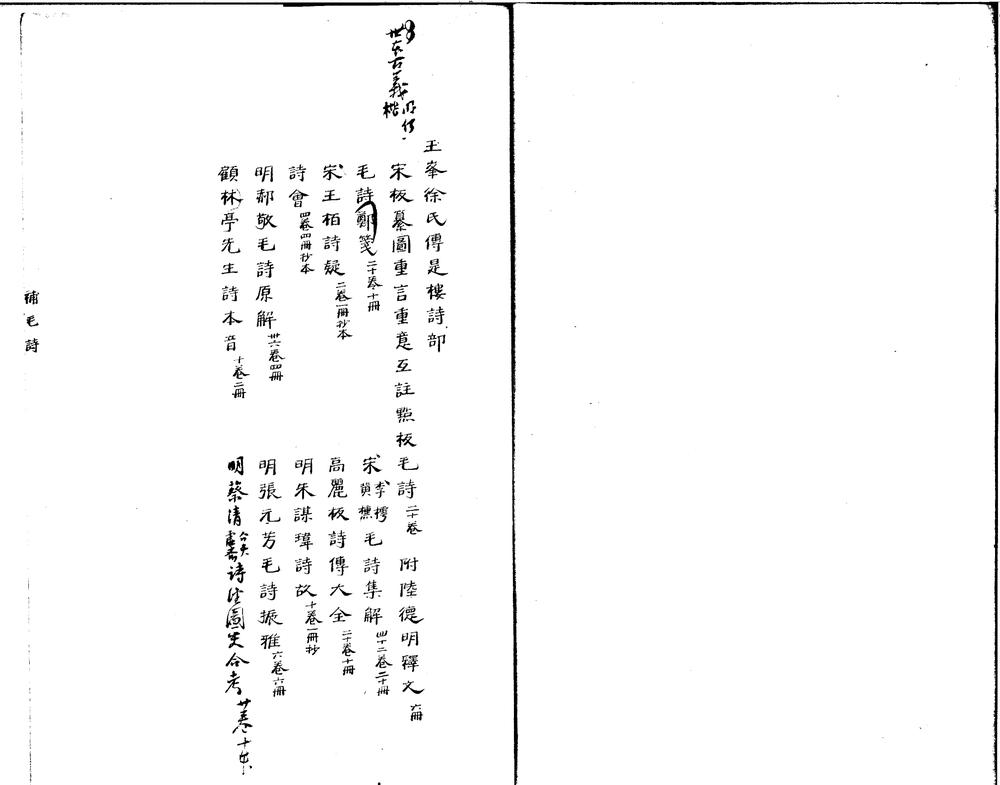 世本古義
楷
王峯徐氏傳是樓詩部
宋板纂圖重言重意互註點板毛詩二十卷 附陸德明釋文六冊
毛詩鄭箋二十卷十冊
宋李樗黃櫄毛詩集解四十二卷二十冊
宋王栢詩疑二卷一冊抄本
高麗板詩傳大全二十卷十冊
詩會四卷四冊抄本
明朱謀㙔詩故十卷一冊抄
明郝敬毛詩原解卅六卷四冊
明張元芳毛詩振雅六卷六冊
顧林亭先生詩本音十卷二冊
明蔡清虛齋詩
圖史合考廿卷十
補毛詩